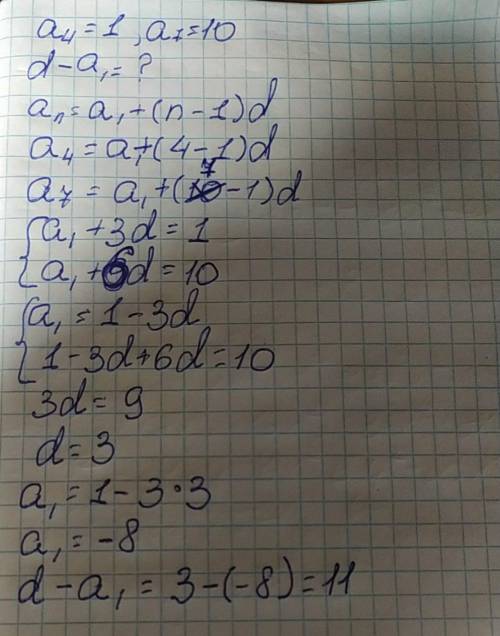 a₄=1, a₇=10
d-a₁=?
aₙ=a₁+(n-1)d
a₄=a₁+(4-1)d
a₇=a₁+(7-1)d
{a₁+3d=1
{a₁+6d=10
{a₁=1-3d
{1-3d+6d=10
3d=9
d=3
a₁=1-3·3
a₁=-8
d-a₁=3-(-8)=11